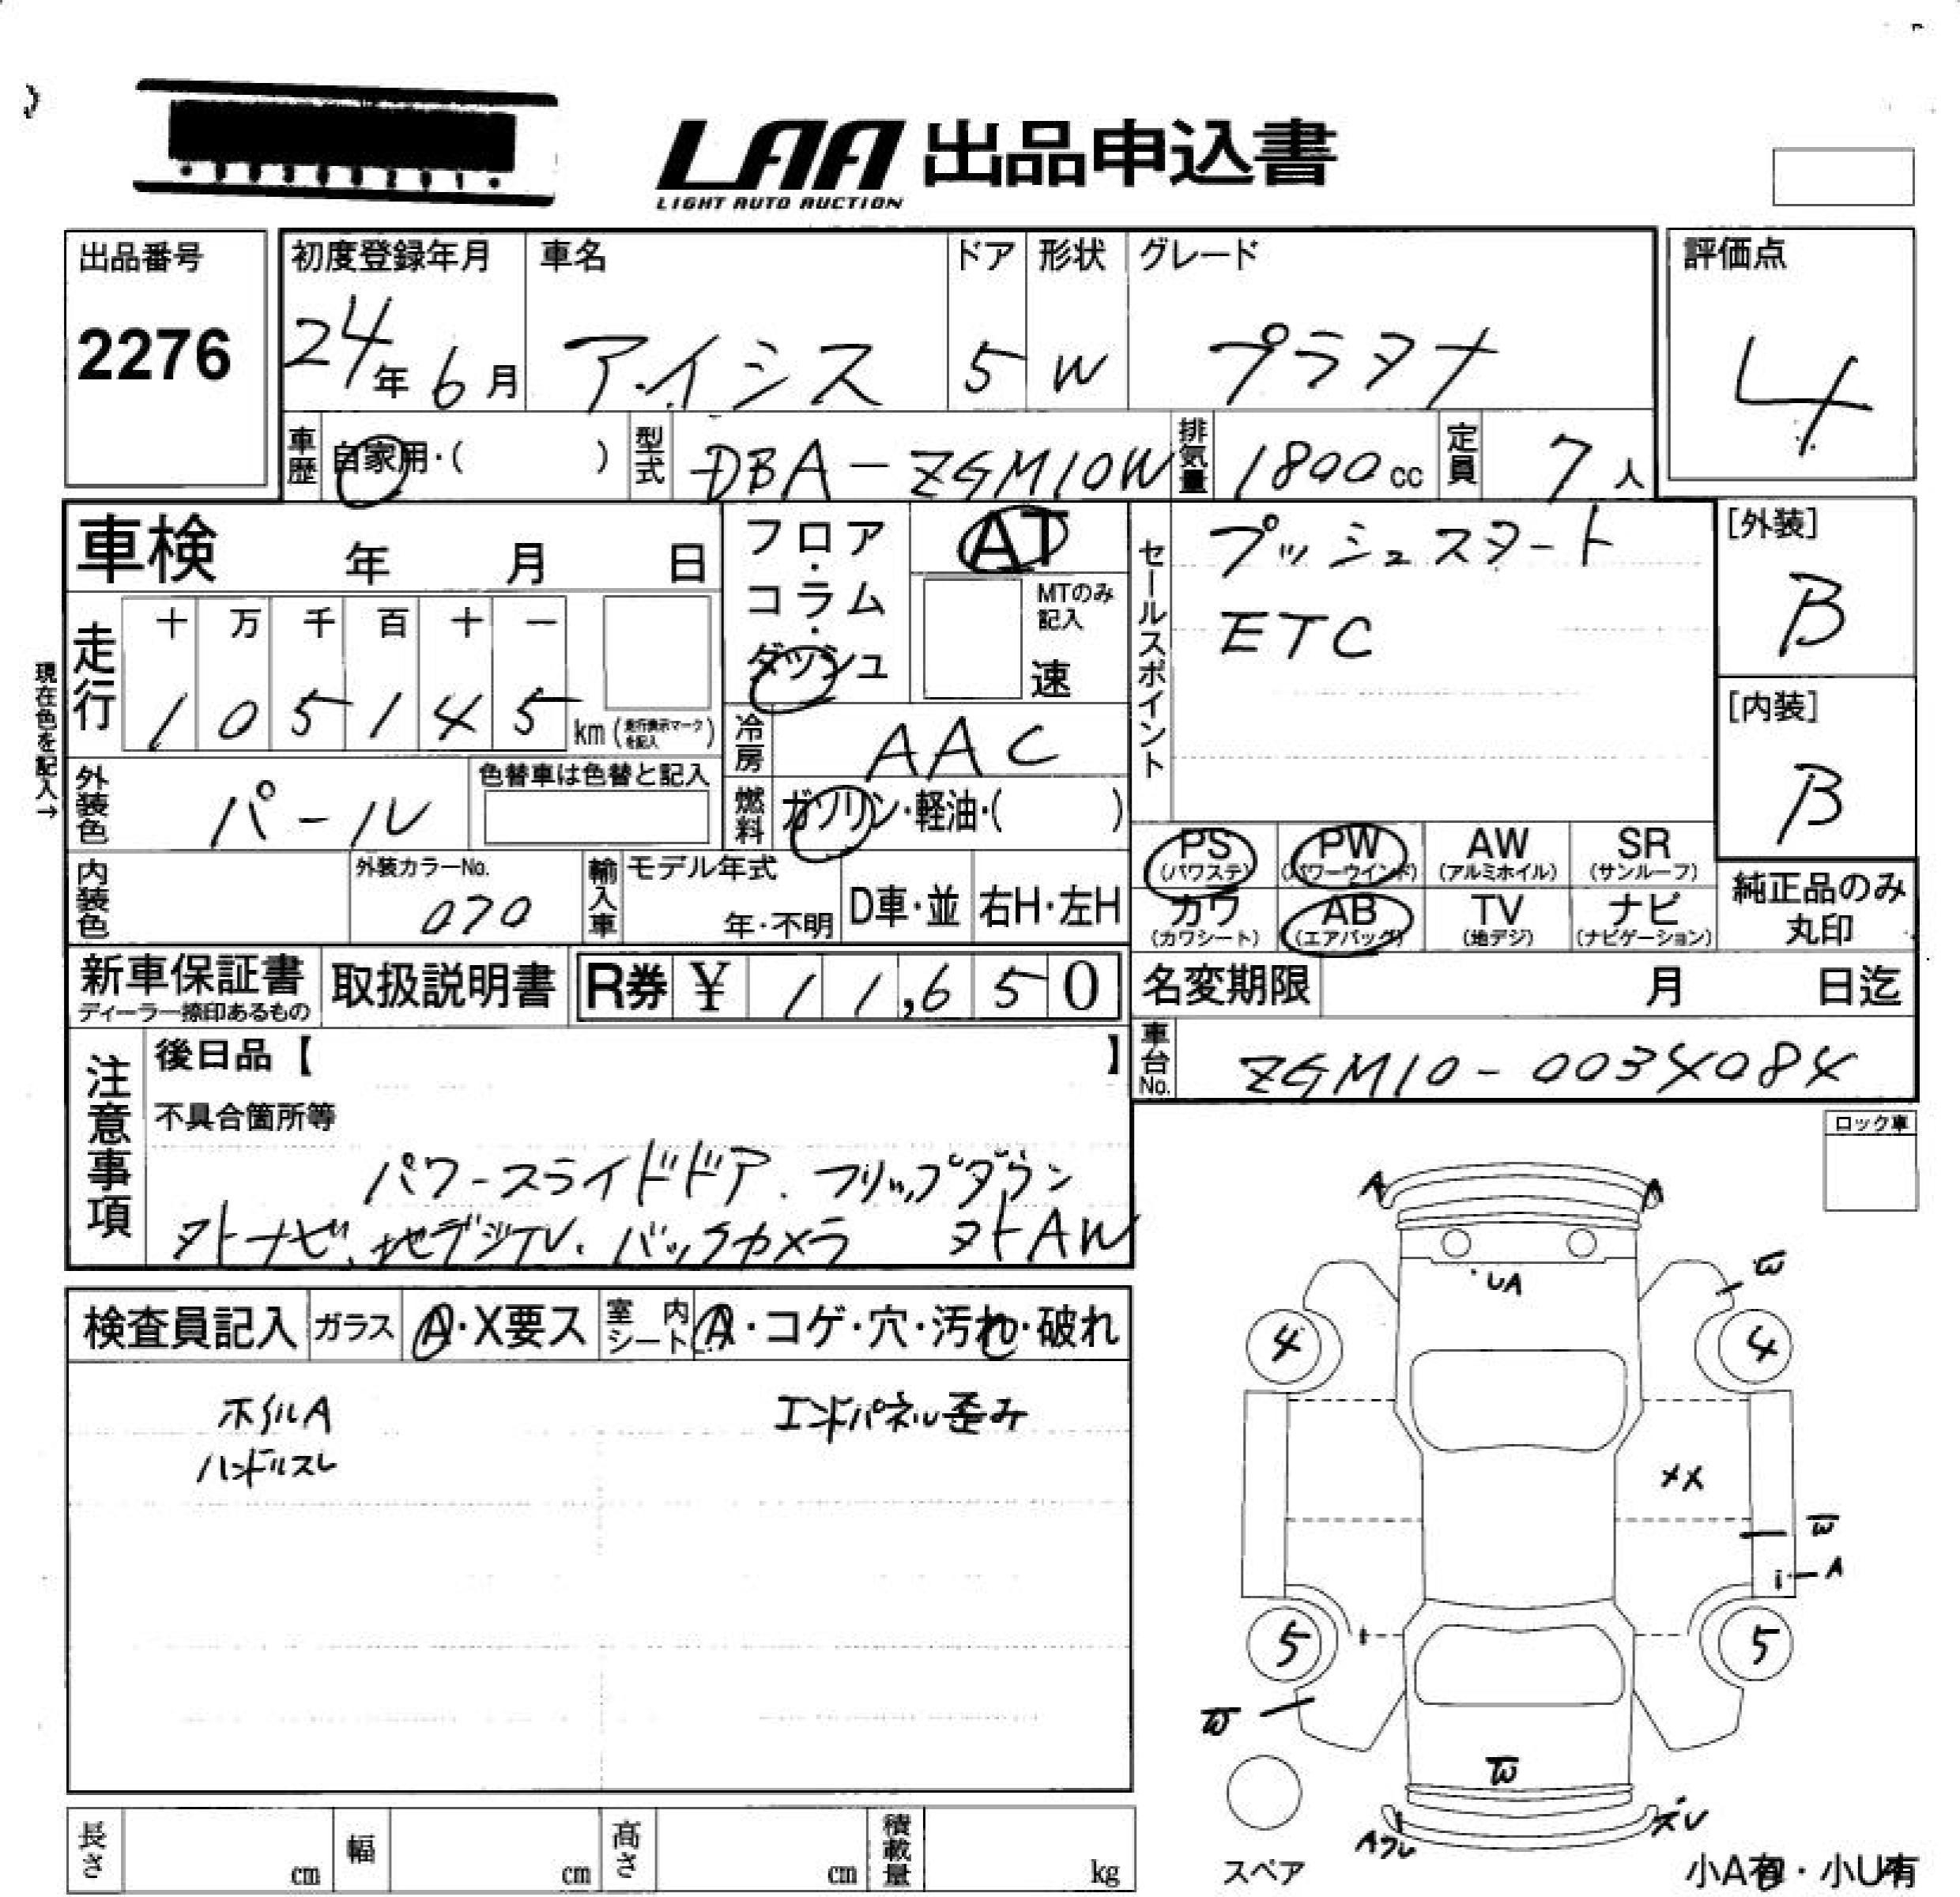 LAA 出品申込書
LIGHT AUTO AUCTION
出品番号
2276
初度登録年月
24年6月
車名
アイシス
ドア
5
形状
W
グレード
プラタナ
評価点
4
車歴
自家用・( )
型式
DBA-ZGM10W
排気量
1800cc
定員
7人
車検 年 月 日
フロア・コラム・ダッシュ
AT
MTのみ記入
速
セールスポイント
プッシュスタート
ETC
[外装]
B
[内装]
B
現在色を記入→
走行
十 万 千 百 十 一
1 0 5 1 4 5 km (走行表示マークを記入)
冷房
AAC
外装色
パール
色替車は色替と記入
燃料
ガソリン・軽油・( )
PS (パワステ)
PW (パワーウインド)
AW (アルミホイル)
SR (サンルーフ)
カワ (カワシート)
AB (エアバッグ)
TV (地デジ)
ナビ (ナビゲーション)
純正品のみ丸印
内装色
外装カラーNo.
070
輸入車
モデル年式
年・不明
D車・並
右H・左H
新車保証書
ディーラー捺印あるもの
取扱説明書
R券 ¥ 11,650
名変期限 月 日迄
車台No.
ZGM10-0034084
注意事項
後日品【 】
不具合箇所等
パワースライドドア、フリップダウン
ヌトナビ、地デジTV、バックカメラ ヌトAW
ロック車
検査員記入
ガラス
A・X要ス
室内シート
A・コゲ・穴・汚れ・破れ
ホイルA
ハンドルスレ
エンドパネル歪み
A
A
UA
W
4
4
XX
W
A
5
5
W
W
スレ
スペア
小A有・小U有
長さ cm
幅 cm
高さ cm
積載量 kg